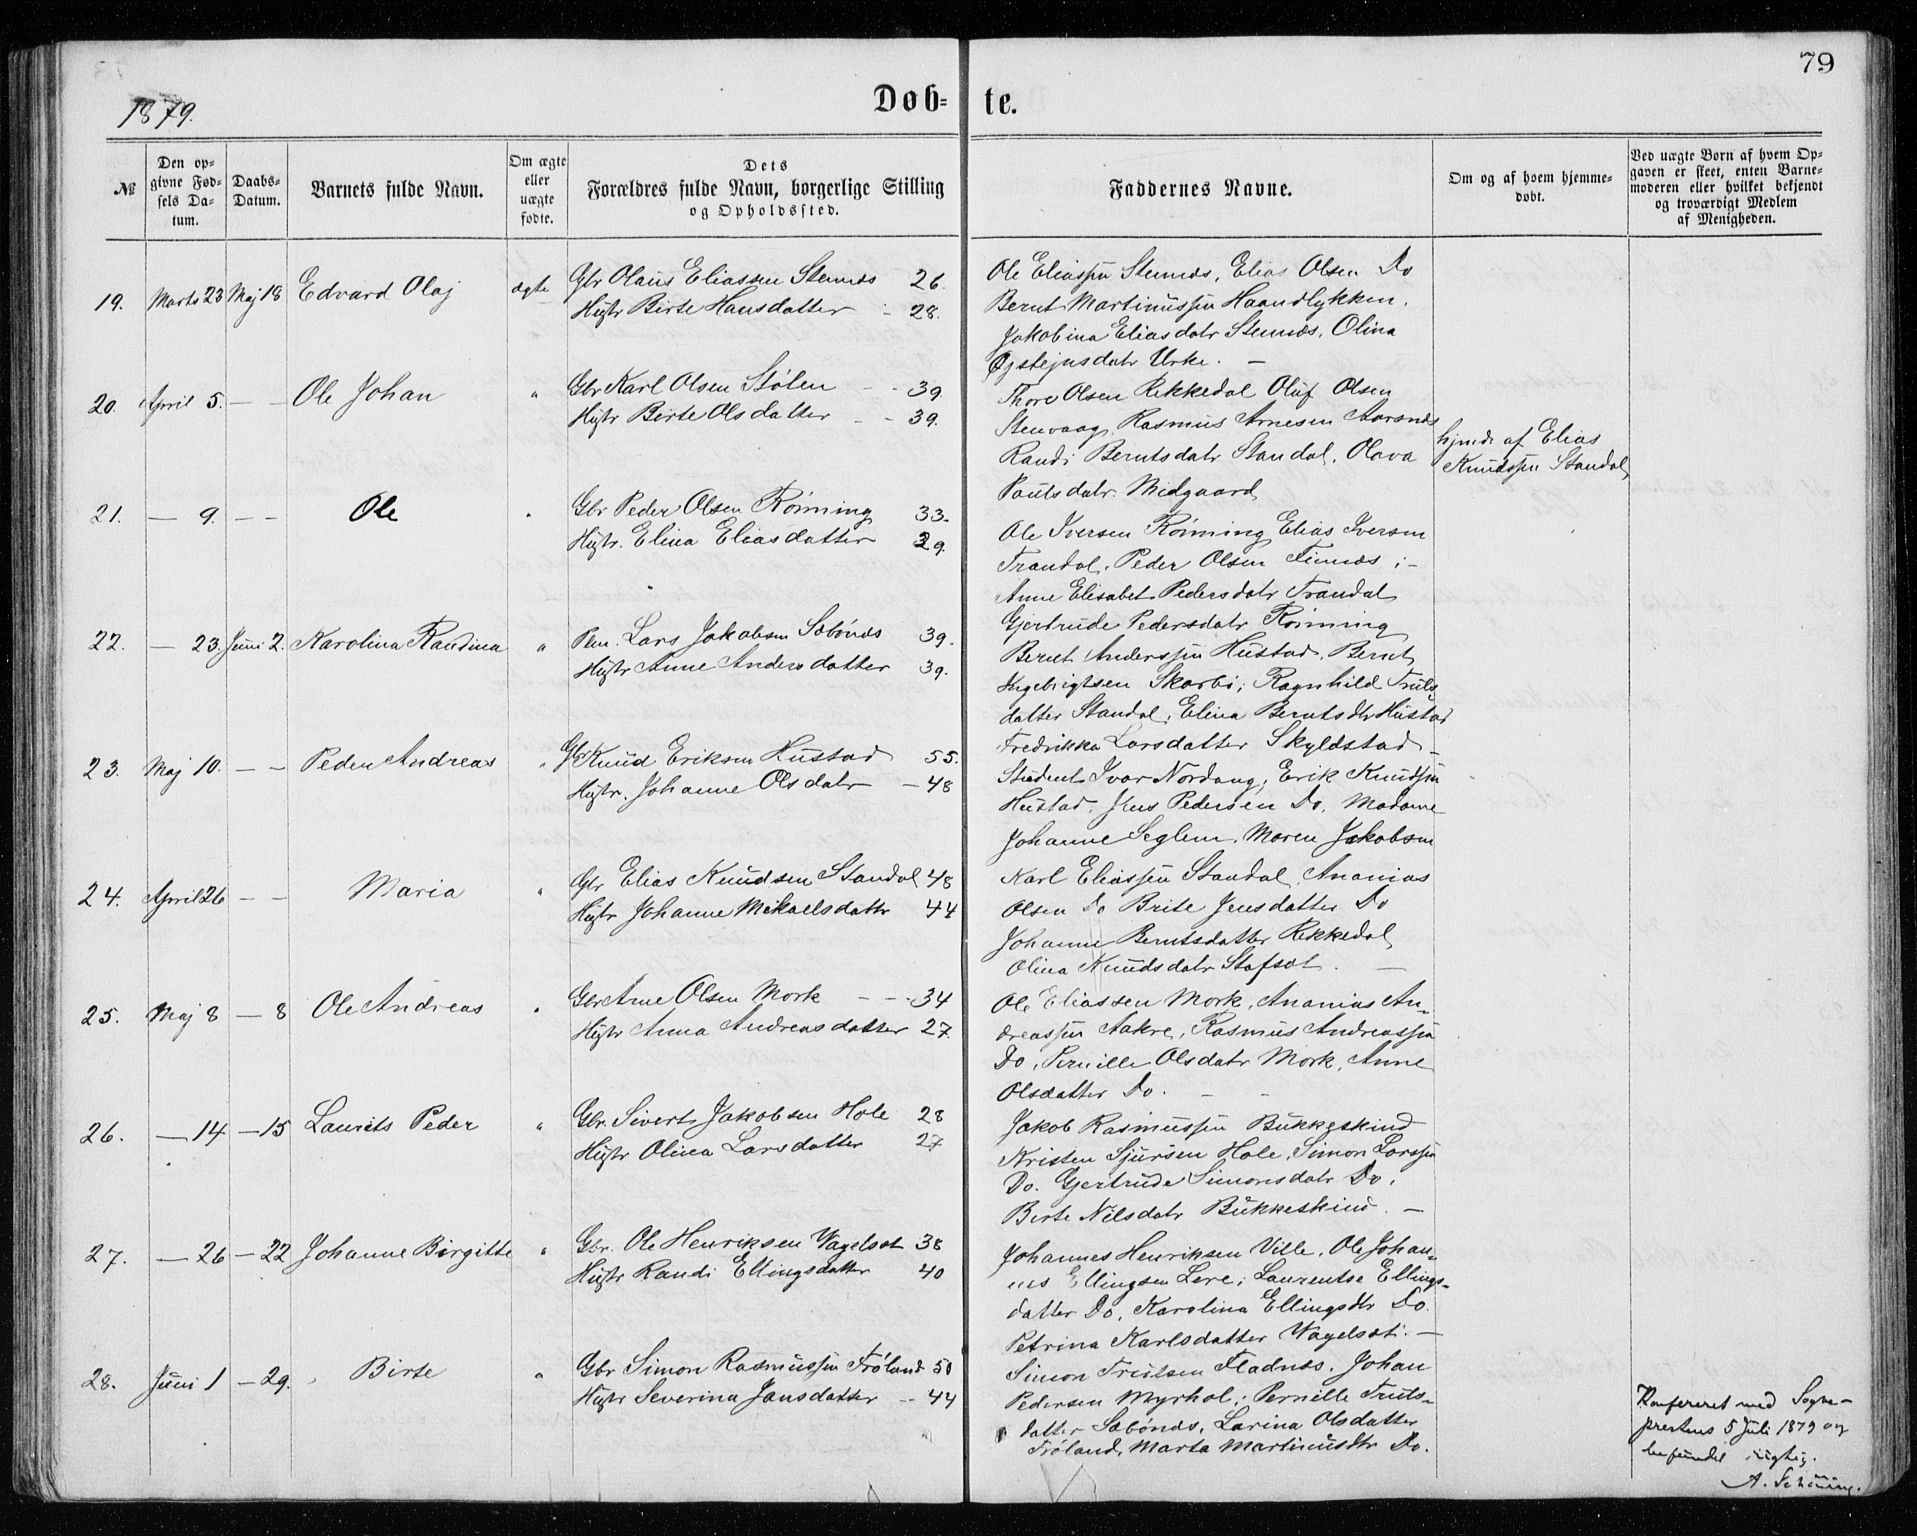 79
1879.
Døb- te.
№
Den op-
givne Fød-
sels Da-
tum.
Daabs-
Datum.
Barnets fulde Navn.
Om ægte
eller
uægte
fødte.
Dets
Forældres fulde Navn, borgerlige Stilling
og Opholdssted.
Faddernes Navne.
Om og af hvem hjemme-
døbt.
Ved uægte Børn af hvem Op-
gaven er skeet, enten Barne-
moderen eller hvilket bekjendt
og troværdigt Medlem
af Menigheden.
19. Marts 23 Maj 18 Edvard Olaj ægte Gbr Olaus Eliassen Stennæs 26.
Hustr Birte Hansdatter - 28.
Ole Eliassen Stennæs, Elias Olsen Do
Bernt Martinussen Haandlykken.
Jakobina Eliasdatr Stennæs, Olina
Øjstejnsdatr Urke. —
20. April 5. — — Ole Johan " Gbr Karl Olsen Stølen - - 39.
Hustr Birte Olsdatter - - 39.
Thore Olsen Rekkedal Oluf Olsen
Stenvaag, Rasmus Arnesen Aarsnes
Randi Berntsdatr Standal, Olava
Poulsdatr. Midgaard
hjmdt af Elias
Knudssen Standal,
21. — 9. — — Ole " Gbr Peder Olsen Rønning 33.
Hustr. Elina Eliasdatter 29.
Ole Iversen Rønning, Elias Iversen
Trandal, Peder Olsen Finnes ; -
Anne Elisabet Pedersdatr Trandal
Gjertrude Pedersdatr Rønning
22. — 23. Juni 2. Karolina Randina " Pln. Lars Jakobsen Sæbønæs 39.
Hustr Anne Andersdatter 39.
Bernt Anderssen Hustad, Bernt
Ingebrigtsen Skarbø; Ragnhild Truls-
datter Standal, Elina Berntsdtr Hustad
Fredrikka Larsdatter Skyldstad -
23. Maj 10. — — Peder Andreas " Gbr Knud Eriksen Hustad 55.
Hustr. Johanne Olsdatr - 48
Student Ivar Nordang; Erik Knudsen
Hustad, Jens Pedersen Do. Madame
Johanne Seglem, Maren Jakobsen
24. April 26 — — Maria " Gbr Elias Knudsen Standal 48
Hustr Johanne Mikaelsdattr 44
Karl Eliassen Standal, Ananias
Olsen Do Brite Jensdatter Do
Johanne Berntsdatter Rekkedal
Olina Knudsdatr Stafsæt. —
25. Maj 8 — 8 Ole Andreas " Gbr Arne Olsen Mork - - - 34
Hustr Anna Andreasdatter 27.
Ole Eliassen Mork, Ananias An-
dreassen Aakre, Rasmus Andreassen
Do, Pernille Olsdatr Mork, Anne
Olsdatter Do. - -
26. — 14 — 15 Laurits Peder " Gbr. Sivert Jakobsen Hole 28
Hustr Olina Larsdatter 27
Jakob Rasmussen Bukkeskind
Kristen Sjursen Hole, Simon Larssen
Do. Gjertrude Simonsdatr Do,
Berte Nilsdatr Bukkeskind. —
27. — 26 — 22 Johanne Birgitte " Gbr. Ole Henriksen Vagelsæt 38
Hustr Randi Ellingsdatter 40
Johannes Henriksen Ville, Ole Johan-
nes Ellingsen Lere; Laurentse Ellings-
datter Do, Karolina Ellingsdtr Do.
Petrina Karlsdatter Vagelsæt. —
28. Juni 1 — 29. Birte " Gbr Simon Rasmussen Frøland 50
Hustr Severina Jansdatter - 44
Simon Trulsen Fladnæs, Johan
Pedersen Myrhol; Pernille Truls-
datter Sæbønæs, Larina Olsdatter
Frøland, Marta Martinusdtr Do.
Konfereret med Sogne-
prestens 5 Juli 1879 og
befundet rigtig.
A. Schöning.